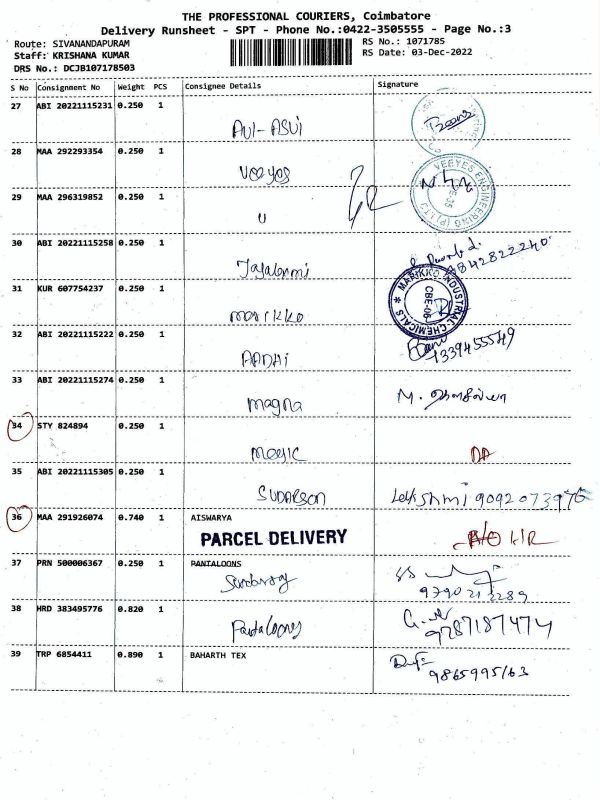 THE PROFESSIONAL COURIERS, Coimbatore
Delivery Runsheet - SPT - Phone No.:0422-3505555 - Page No.:3
Route: SIVANANDAPURAM
RS No.: 1071785
Staff: KRISHANA KUMAR
RS Date: 03-Dec-2022
DRS No.: DCJB107178503
S No Consignment No Weight PCS Consignee Details Signature
27 ABI 20221115231 0.250 1
AVI-ASVI
28 MAA 292293354 0.250 1
Veeyes
VEEYES ENGINEERING (P) LTD
29 MAA 296319852 0.250 1
30 ABI 20221115258 0.250 1
9842822240
31 KUR 607754237 0.250 1
marikko
MARIKKO INDUSTRIAL CHEMICALS
32 ABI 20221115222 0.250 1
AADHI
1339455549
33 ABI 20221115274 0.250 1
magna
34 STY 824894 0.250 1
magic
35 ABI 20221115305 0.250 1
SUDARSON
9092073976
36 MAA 291926074 0.740 1 AISWARYA
PARCEL DELIVERY
37 PRN 500006367 0.250 1 PANTALOONS
9790213289
38 HRD 383495776 0.820 1
Pantaloons
9787187474
39 TRP 6854411 0.890 1 BAHARTH TEX
9865995163